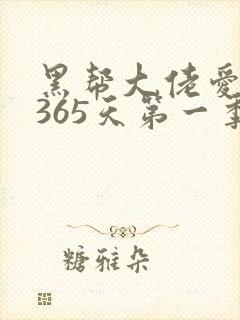 黑帮大佬爱
365天第一季
糖雅朵